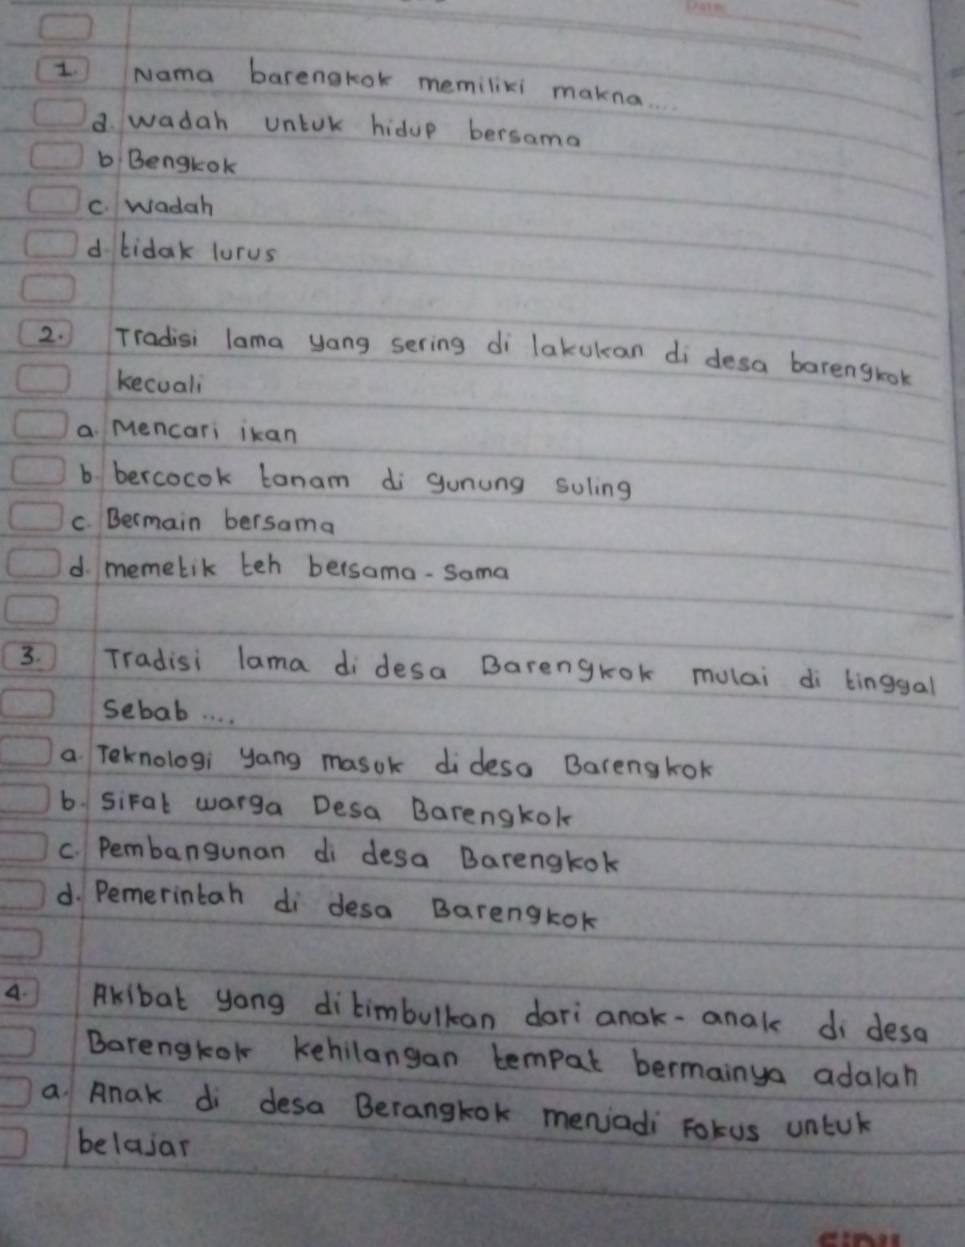 Date:
1. Nama barengkok memiliki makna....
a. wadah untuk hidup bersama
b. Bengkok
c. wadah
d. tidak lurus
2. Tradisi lama yang sering di lakukan di desa barengkok
kecuali
a. Mencari ikan
b. bercocok tanam di gunung suling
c. Bermain bersama
d. memetik teh bersama-sama
3. Tradisi lama di desa Barengkok mulai di tinggal
sebab ....
a. Teknologi yang masuk di desa Barengkok
b. Sifat warga Desa Barengkok
c. Pembangunan di desa Barengkok
d. Pemerintah di desa Barengkok
4. Akibat yang ditimbulkan dari anak-anak di desa
Barengkok kehilangan tempat bermainya adalah
a. Anak di desa Berangkok menjadi Fokus untuk
belajar
SIDU